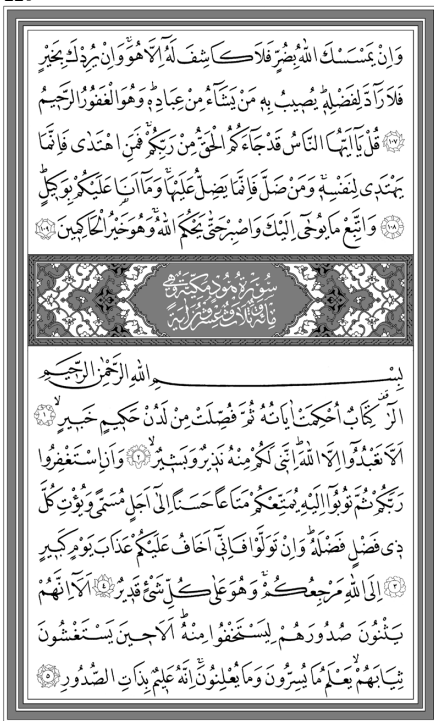 وَاِنْ يَمْسَسْكَ اللّٰهُ بِضُرٍّ فَلَا كَاشِفَ لَهُٓ اِلَّا هُوَۚ وَاِنْ يُرِدْكَ بِخَيْرٍ
فَلَا رَٓادَّ لِفَضْلِه۪ۜ يُص۪يبُ بِه۪ مَنْ يَشَٓاءُ مِنْ عِبَادِه۪ۜ وَهُوَ الْغَفُورُ الرَّح۪يمُ
﴿١٠٧﴾ قُلْ يَٓا اَيُّهَا النَّاسُ قَدْ جَٓاءَكُمُ الْحَقُّ مِنْ رَبِّكُمْۚ فَمَنِ اهْتَدٰى فَاِنَّمَا
يَهْتَد۪ي لِنَفْسِه۪ۚ وَمَنْ ضَلَّ فَاِنَّمَا يَضِلُّ عَلَيْهَاۚ وَمَٓا اَنَا۬ عَلَيْكُمْ بِوَك۪يلٍۜ
﴿١٠٨﴾ وَاتَّبِعْ مَا يُوحٰٓى اِلَيْكَ وَاصْبِرْ حَتّٰى يَحْكُمَ اللّٰهُۚ وَهُوَ خَيْرُ الْحَاكِم۪ينَ ﴿١٠٩﴾
سُورَةُ هُودٍ مَكِّيَّةٌ وَهِيَ
مِائَةٌ وَثَلَاثٌ وَعِشْرُونَ اٰيَةً
بِسْمِ اللّٰهِ الرَّحْمٰنِ الرَّح۪يمِ
الٓرٰ۠ كِتَابٌ اُحْكِمَتْ اٰيَاتُهُ ثُمَّ فُصِّلَتْ مِنْ لَدُنْ حَك۪يمٍ خَب۪يرٍۙ ﴿١﴾
اَلَّا تَعْبُدُٓوا اِلَّا اللّٰهَۜ اِنَّن۪ي لَكُمْ مِنْهُ نَذ۪يرٌ وَبَش۪يرٌۙ ﴿٢﴾ وَاَنِ اسْتَغْفِرُوا
رَبَّكُمْ ثُمَّ تُوبُٓوا اِلَيْهِ يُمَتِّعْكُمْ مَتَاعًا حَسَنًا اِلٰٓى اَجَلٍ مُسَمًّى وَيُؤْتِ كُلَّ
ذ۪ي فَضْلٍ فَضْلَهُۜ وَاِنْ تَوَلَّوْا فَاِنّ۪ٓي اَخَافُ عَلَيْكُمْ عَذَابَ يَوْمٍ كَب۪يرٍ
﴿٣﴾ اِلَى اللّٰهِ مَرْجِعُكُمْۚ وَهُوَ عَلٰى كُلِّ شَيْءٍ قَد۪يرٌ ﴿٤﴾ اَلَٓا اِنَّهُمْ
يَثْنُونَ صُدُورَهُمْ لِيَسْتَخْفُوا مِنْهُۜ اَلَا ح۪ينَ يَسْتَغْشُونَ
ثِيَابَهُمْۙ يَعْلَمُ مَا يُسِرُّونَ وَمَا يُعْلِنُونَۚ اِنَّهُ عَل۪يمٌ بِذَاتِ الصُّدُورِ ﴿٥﴾